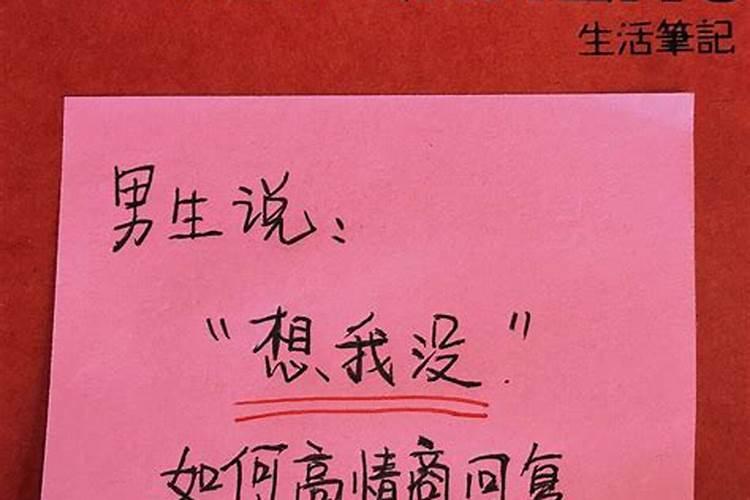 生活筆記
男生说：
"想我没"
如何高情商回复